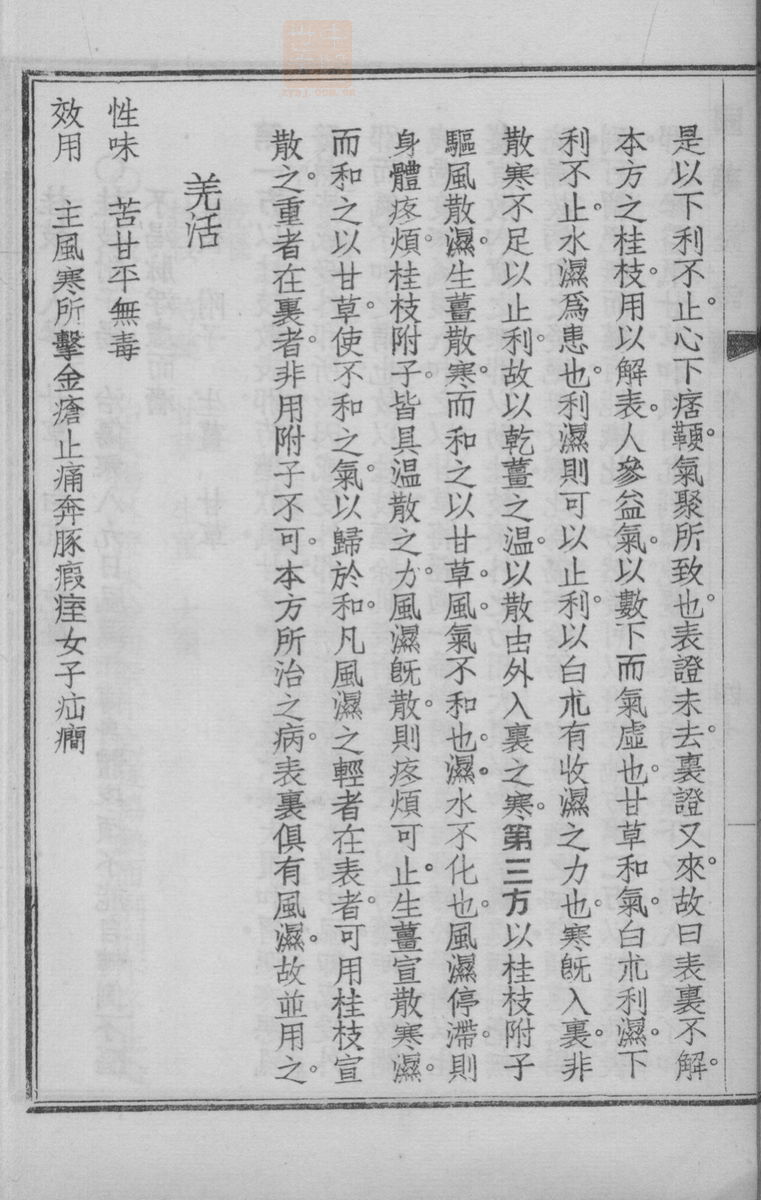 是以下利不止。心下痞鞕。氣聚所致也。表證未去。裏證又來。故曰表裏不解。
本方之桂枝。用以解表。人參益氣。以數下而氣虛也。甘草和氣。白朮利濕。下
利不止。水濕爲患也。利濕則可以止利。以白朮有收濕之力也。寒旣入裏。非
散寒不足以止利。故以乾薑之温。以散由外入裏之寒。第三方以桂枝附子
驅風散濕。生薑散寒。而和之以甘草。風氣不和也。濕水不化也。風濕停滯。則
身體疼煩。桂枝附子。皆具温散之力。風濕旣散。則疼煩可止。生薑宣散寒濕。
而和之以甘草。使不和之氣。以歸於和。凡風濕之輕者在表者。可用桂枝宣
散之。重者在裏者。非用附子不可。本方所治之病。表裏俱有風濕。故並用之。
羌活
性味　苦甘平無毒
效用　主風寒所擊金瘡止痛奔豚瘕痓女子疝癎